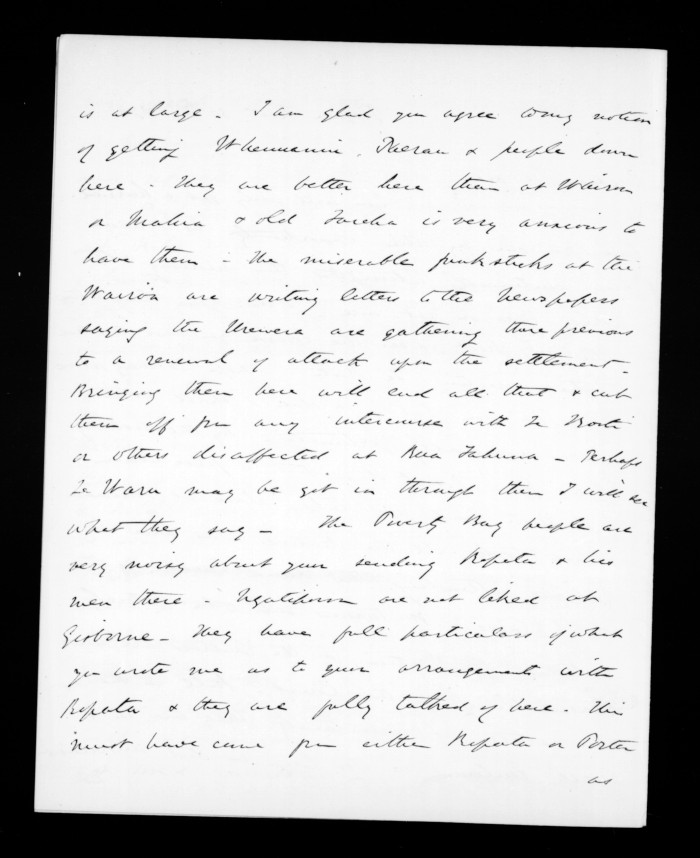 is at large - I am glad you agree to my notion
of getting Whenuanui, Paerau & people down
here - They are better here than at Wairoa
or Mahia & old Tareha is very anxious to
have them - the miserable funksticks at the
Wairoa are writing letters to the Newspapers
saying the Urewera are gathering there previous
to a renewal of attack upon the settlement -
Bringing them here will end all that & cut
them off from any intercourse with Te Kooti
or others disaffected at Rua Tahuna - Perhaps
Te Waru may be got in through them I will see
what they say - The Poverty Bay people are
very noisy about your sending Ropata & his
men there - Ngatiporou are not liked at
Gisborne - They have full particulars of what
you wrote me as to your arrangements with
Ropata & they are fully talked of here - This
must have come from either Ropata or Porter
as